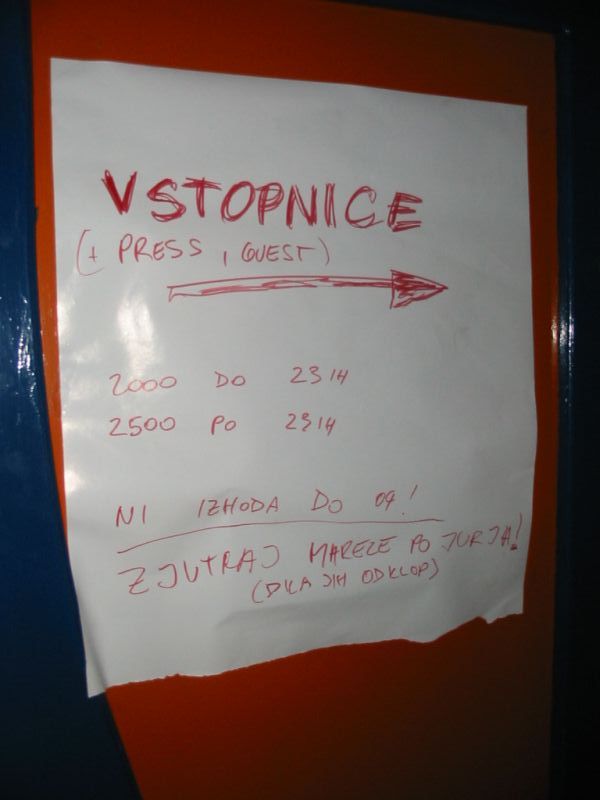 VSTOPNICE
(+ PRESS, GUEST)
2000 DO 23H
2500 PO 23H
NI IZHODA DO 09!
ZJUTRAJ MARELE PO JURJA!
(DILA JIH ODKLOP)